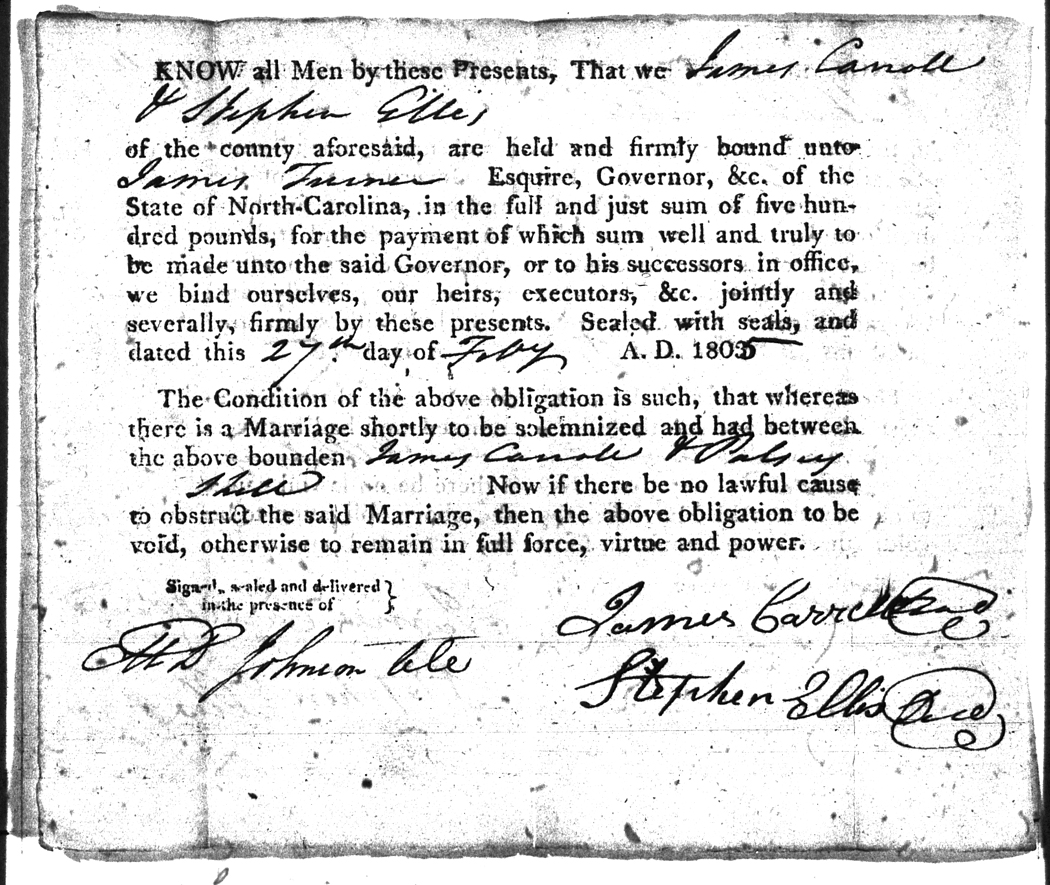 KNOW all Men by these Presents, That we James Carroll
& Stephen Ellis
of the county aforesaid, are held and firmly bound unto
James Turner Esquire, Governor, &c. of the
State of North-Carolina, in the full and just sum of five hun-
dred pounds, for the payment of which sum well and truly to
be made unto the said Governor, or to his successors in office,
we bind ourselves, our heirs, executors, &c. jointly and
severally, firmly by these presents. Sealed with seals, and
dated this 27th day of Feby A. D. 1805
The Condition of the above obligation is such, that whereas
there is a Marriage shortly to be solemnized and had between
the above bounden James Carroll & Patsey
Now if there be no lawful cause
to obstruct the said Marriage, then the above obligation to be
void, otherwise to remain in full force, virtue and power.
Signed, sealed and delivered }
in the presence of }
James Carroll Seal
M D Johnson
Stephen Ellis Seal